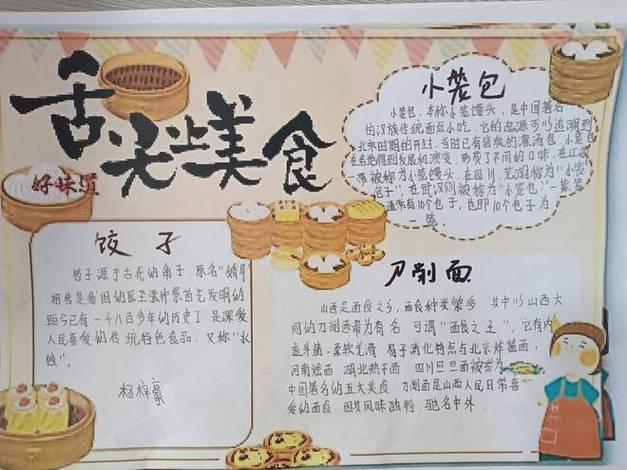 舌尖上美食
好味道
小笼包
小笼包,本称小笼馒头,是中国著名
的汉族传统面点小吃,它的起源可以追溯到
北宋时期的开封,当时已有售收的灌汤包,小笼包
在各地得到发展和演变,形成了不同的口味,在江浙
一带被称为小笼馒头,在四川,芜湖称为"小笼
包子",在武汉则被称为"小笼包"一笼笼
通常有10个包子,也即10个包子为
一笼
饺子
饺子源于古代的角子,原名"娇耳
相传是我国的医圣张仲景首先发明的
距今已有一千八百多年的历史了,是深爱
人民喜爱的传统特色食品,又称"水
饺"。
杨梓豪
刀削面
山西是面食之乡,面食种类繁多,其中以山西大
同的刀削面最为有名,可谓"面食之王",它有内
虚外筋,柔软光滑,易于消化特点与北京炸酱面,
河南烩面,湖北热干面,四川旦旦面被誉为
中国著名的五大美食,刀削面是山西人民日常喜
爱的面食,因其风味独特,驰名中外.